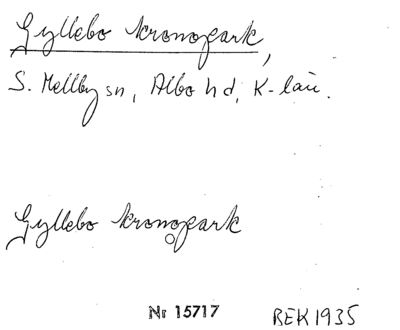 Gyllebo kronopark,
S. Mellby sn, Albo hd, K-län.
Gyllebo kronopark
Nr 15717
BEK 1935